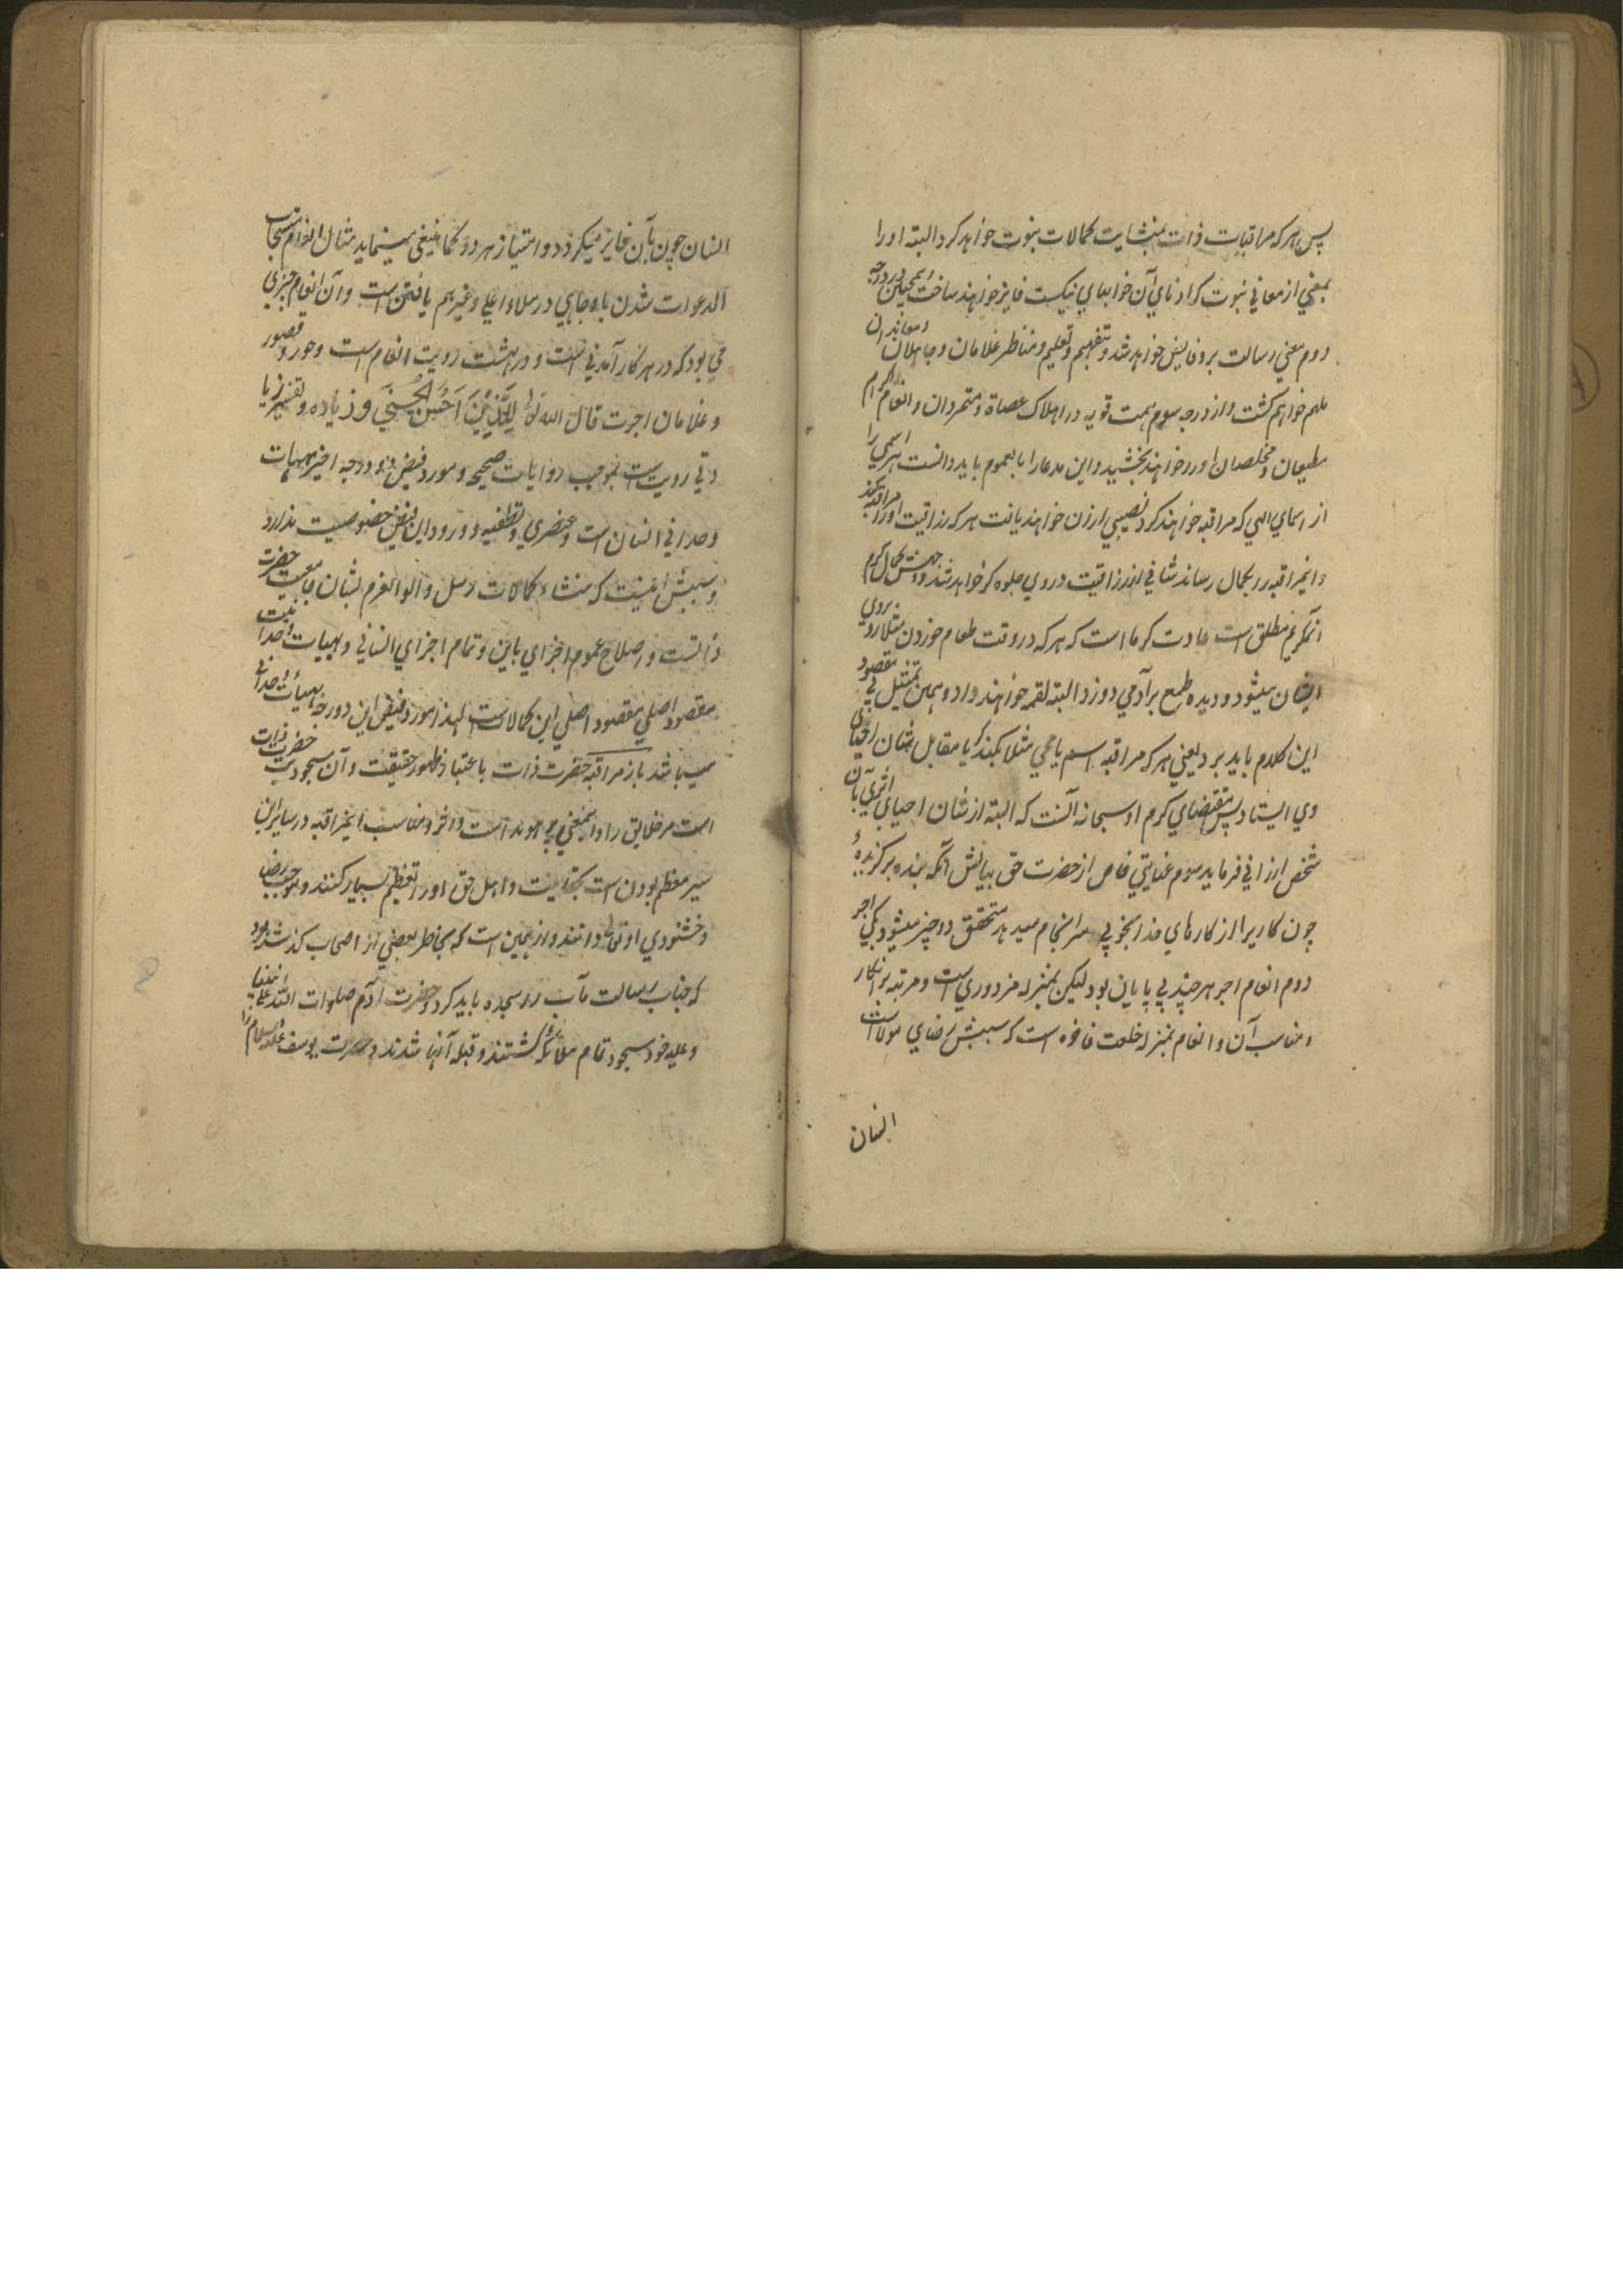 پس هر که مراقبات ذات بمنشایت کمالات نبوت خواهد کرد البته او را
بمعنی از معانی نبوت که ادنای آن خوابهای نیکست فایز خواهند ساخت همچنین در درجه
دوم معنی رسالت برو فایض خواهد شد و تفهیم و تعلیم و مناظر غلامان و جاهلان و معاندان
ملهم خواهم کشت و از درجه سوم همت قویه در اهلاک عصاة و متمردان و انعام و اکرام
مطیعان و مخلصان او را خواهند بخشید و این مدعا را بالعموم باید دانست هر اسمی را
از اسمای الهی که مراقبه خواهند کرد نصیبی ازان خواهند یافت هر که رزاقیت او را مراقبه کند
و اینمراقبه را بکمال رساند شانی از رزاقیت در وی جلوه کر خواهد شد و جهتش کمال کرم
آنکریم مطلق است عادت کرما است که هر که در وقت طعام خوردن مثلا رو بروی
ایشان میشود و دیده طمع بر آدمی دوزد البته لقمه خواهند داد و همین تمثیل پی مقصود
این کلام باید برد یعنی هر که مراقبه اسم یا محیی مثلا بکند کویا مقابل شان احیای
وی ایستاد پس بمقتضای کرم او سبحانه آنست که البته از شان احیای اثری بآن
شخص ارزانی فرماید سوم عنایتی خاص از حضرت حق بیانش آنکه بنده برکزیدهٔ
چون کاریرا از کارهای خدا بخوبی سرانجام میدهد مستحقق دو چیز میشود یکی اجر
دوم انعام اجر هر چند بی پایان بود لیکن بمنزله مزدوری است و مرتبه بر انکار
و مناسب آن و انعام بمنزله خلعت فاخره است که سببش رضای مولاست
انسان
انسان چون بآن فایز میکردد و امتیاز هر دو کما ینبغی مینماید مثال انعام مستجاب
الدعوات شدن با وجاهی در ملاء اعلی و غیرهم یافتن است و آن انعام چیزی
می بود که در هر کار آمدنی است و در بهشت رویت انعام است و حور و قصور
و غلامان اجرت قال الله تعالی لِلَّذِیْنَ اَحْسَنُوا الْحُسْنٰی وزیاده و تفسیر زیا
دتی رویت است بموجب روایات صحیحه و مورد فیض دو درجه اخیر هیهات
وحدانی انسان است و عنصری و لطفیه و ورود این فیض خصوصیت ندارد
و سببش اینست که منشاء کمالات رسل و الوالعزم بشان جامعیت حضرت
ذاتست و اصلاح عموم اجزای باین و تمام اجزای انسانی و بهیات وحدانیت
مقصود اصلی مقصود اصلی این کمالاست لهذا مورد فیض این دو درجه بهیأت وحدانی
میباشد باز مراقبه حضرت ذات باعتبار ظهور حقیقت و آن مسجودیت حضرت ذات
است مر خلایق را و اینمعنی هویدا است و اثر و مناسب اینمراقبه در سایر این
سیر معظم بودن است بحدیست و اهل حق او را تعظیم بسیار کنند و موجب رضا
و خشنودی او تعالی دانند و از همین است که بخاطر بعضی از اصحاب کذشته بود
که جناب رسالت مآب را سجده باید کرد و حضرت آدم صلوات الله علی نبینا
و علیه خود مسجود تمام ملائکه کشتند و قبله آنها شدند و حضرت یوسف علیه السلام را